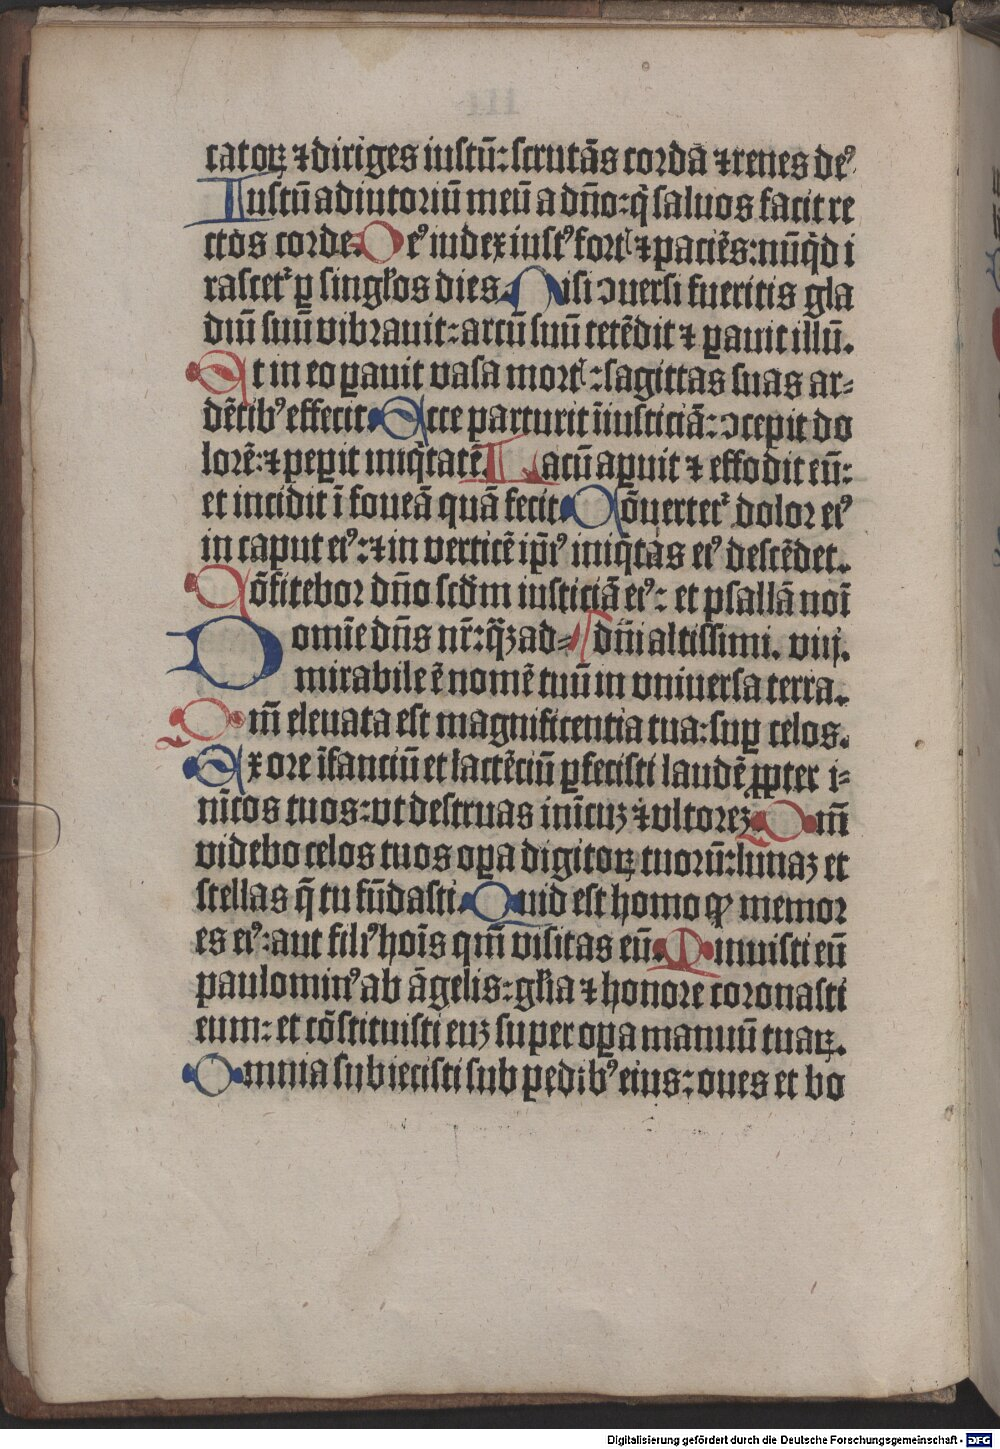 catoꝝ ⁊ diriges iustū: scrutās corda ⁊ renes deꝰ
Iustū adiutoriū meū a dño: q̇ saluos facit re
ctos corde. Deꝰ iudex iustꝰ fortꝭ ⁊ paciēs: nūq̇d i
rascet᷑ ꝑ singĺos dies. Nisi ↄuersi fueritis gla
diū suū vibrauit: arcū suū tetēdit ⁊ ꝑauit illū.
Et in eo ꝑauit vasa mortꝭ: sagittas suas ar⸗
dētibꝰ effecit. Ecce parturit īiusticiā: ↄcepit do
lorē: ⁊ peꝑit iniq̇tatē. Lacū aꝑuit ⁊ effodit eū:
et incidit ī foueā quā fecit. Cōuertet᷑ dolor eiꝰ
in caput eiꝰ: ⁊ in verticē ip̄iꝰ iniq̇tas eiꝰ descēdet.
Cōfitebor dño scd̄m iusticiā eiꝰ: et psallā noī
Domīe dn̄s nr̄: q̄ꝫ ad⸗ dn̄i altissimi. viij.
mirabile ē nomē tuū in vniuersa terra.
Qm̄ eleuata est magnificentia tua: suꝑ celos.
Ex ore īfanciū et lactēciū ꝑfecisti laudē ꝓpter i⸗
nīcos tuos: vt destruas inīcuꝫ ⁊ vltorez. Qm̄
videbo celos tuos oꝑa digitoꝝ tuorū: lunaꝫ et
stellas q̄ tu fūdasti. Quid est homo ꝙ memor
es eiꝰ: aut filiꝰ hoīs qm̄ visitas eū. Minuisti eū
paulominꝰ ab āgelis: glīa ⁊ honore coronasti
eum: et cōstituisti euꝫ super oꝑa manuū tuaꝝ.
Omnia subiecisti sub pedibꝰ eius: oues et bo
Digitalisierung gefördert durch die Deutsche Forschungsgemeinschaft - DFG